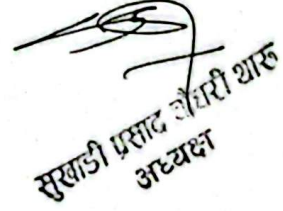 सुखाडी प्रसाद चौधरी थारु
अध्यक्ष